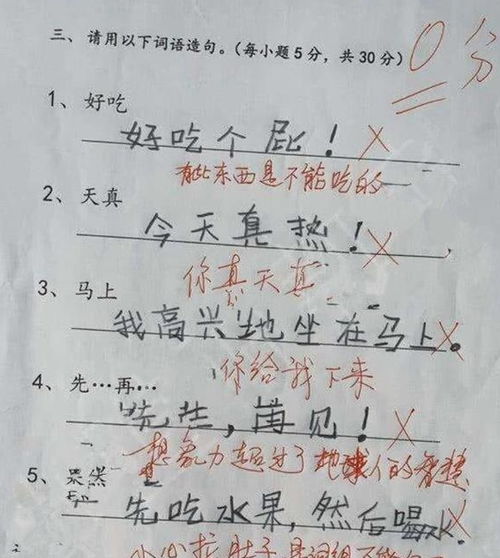 三、请用以下词语造句。（每小题5分，共30分）0分
1、好吃
好吃个屁！
有些东西是不能吃的
2、天真
今天真热！
你真天真
3、马上
我高兴地坐在马上。
你给我下来
4、先…再…
先生，再见！
想象力超过了地球人的智慧
5、果然
先吃水果，然后喝水.